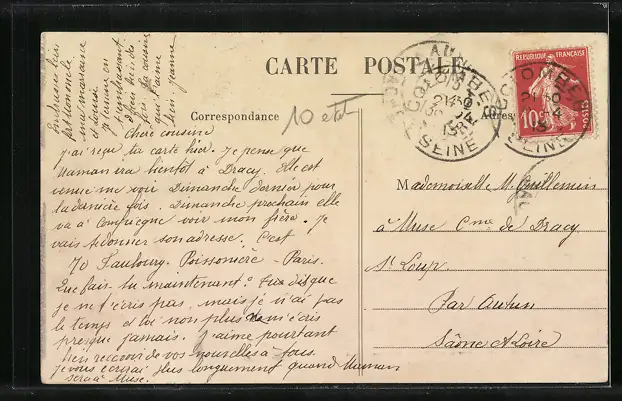 CARTE POSTALE
Correspondance
10 et
Chère cousine
j'ai reçu ta carte hier. Je pense que
Maman ira bientôt à Dracy. Elle est
venue me voir Dimanche dernier pour
la dernière fois. Dimanche prochain elle
va à Compiègne voir mon frère. Je
vais te donner son adresse. C'est
70 Faubourg Poissonnière - Paris.
Que fais tu maintenant? Tu dis que
je ne t'écris pas, mais je n'ai pas
le temps et toi non plus tu m'écris
presque jamais. J'aime pourtant
bien recevoir de vos nouvelles à tous.
je vous écrirai plus longuement quand Maman
sera à Muse.
Embrasse bien
tout le monde
ma marraine
Je termine en
t'embrassant
bien fort
ta cousine
qui t'aime
bien Jeanne
REPUBLIQUE FRANÇAISE
10c
POSTES
COLOMBES
SEINE
COLOMBES
SEINE
Adresse
Mademoiselle M. Guillemin
à Muse Cne de Dracy
St Loup
Par Autun
Saône & Loire